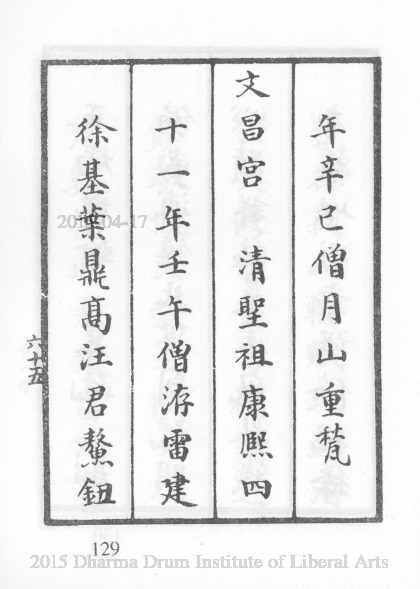 年辛巳僧月山重甃
文昌宮 清聖祖康熙四
十一年壬午僧洊雷建
徐基葉鼎高汪君鰲鈕
六十五
129
2015-04-17
2015 Dharma Drum Institute of Liberal Arts